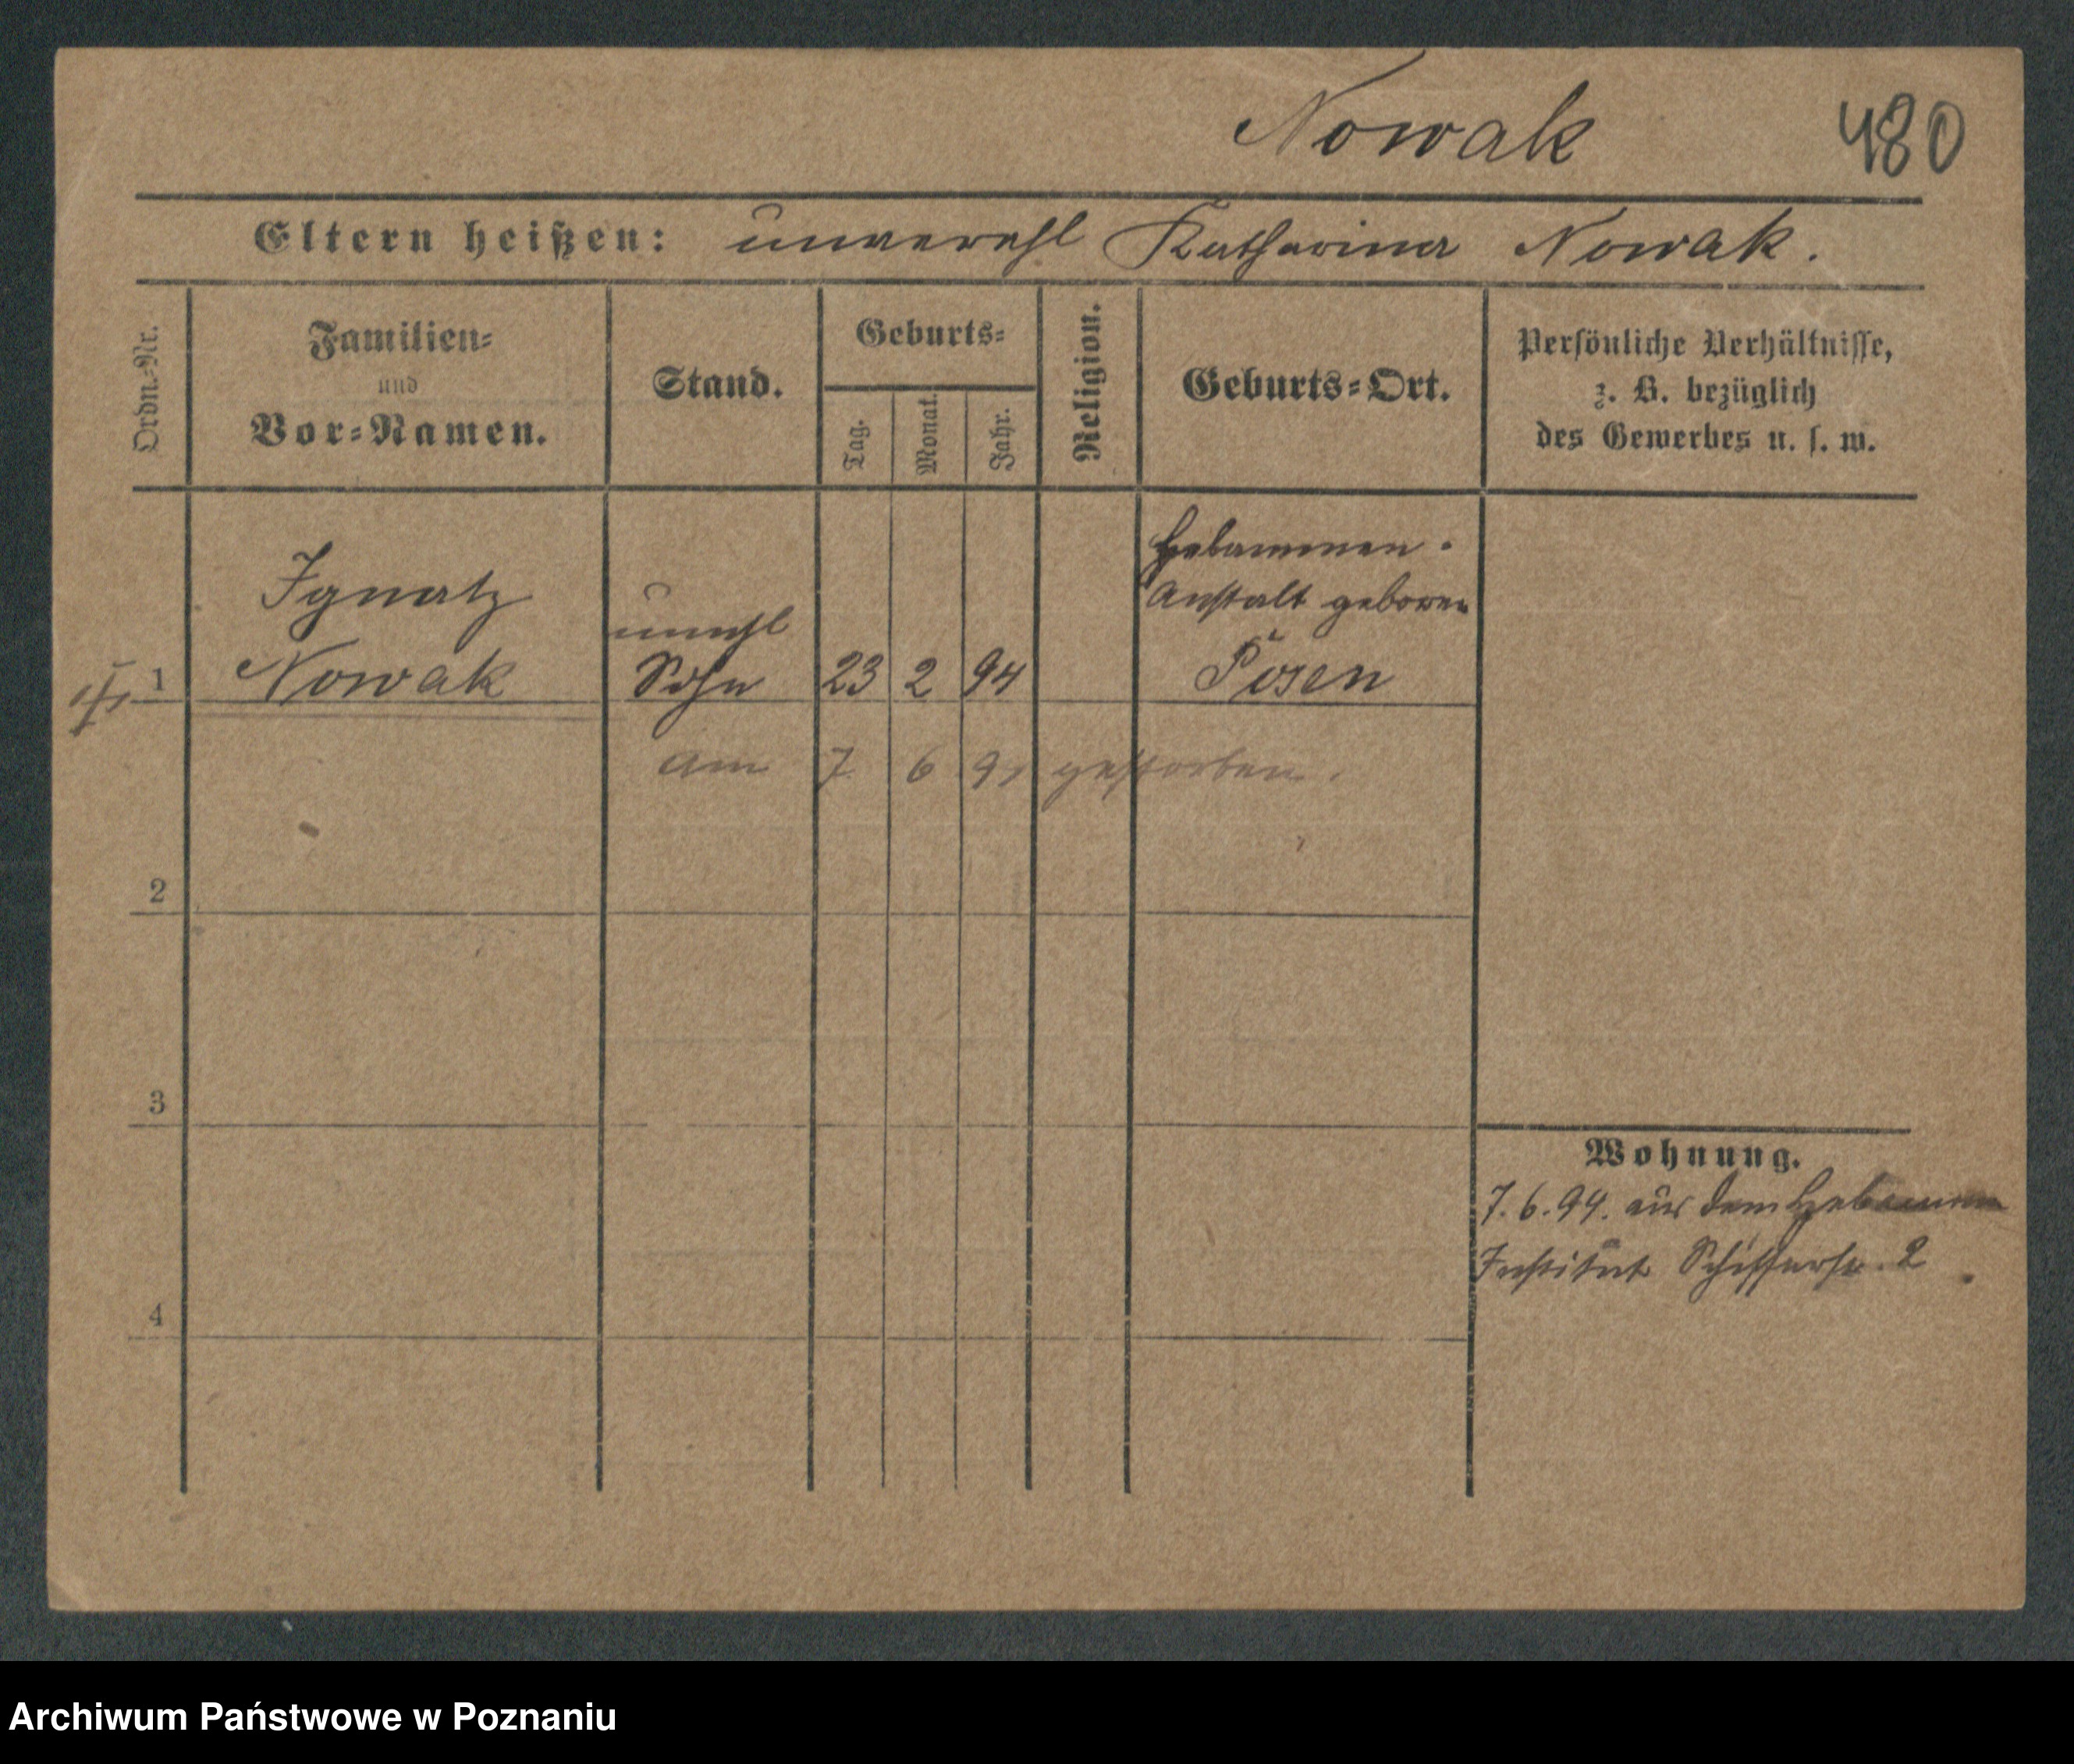 Nowak 480
Eltern heißen: unverehl Katharina Nowak.
Ordn.-Nr.
Familien-
und
Vor-Namen.
Stand.
Geburts-
Tag.
Monat.
Jahr.
Religion.
Geburts-Ort.
Persönliche Verhältnisse,
z. B. bezüglich
des Gewerbes u. s. w.
Hebammen-
Anstalt geboren
Ignatz
unehl
1 Nowak Sohn 23 2 94 Posen
am 7. 6 gestorben.
2
3
Wohnung.
7. 6. 94. aus dem Hebammen
Institut Schifferstr. 2
4
Archiwum Państwowe w Poznaniu